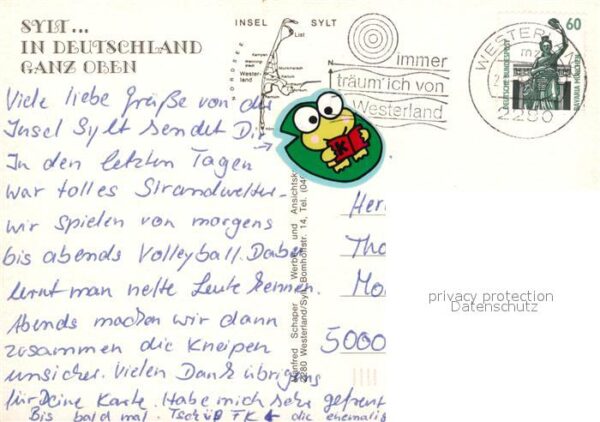 SYLT...
IN DEUTSCHLAND
GANZ OBEN
INSEL SYLT
NORDSEE
List
Kampen
Wenningstedt
Westerland
Munkmarsch
Keitum
immer
träum' ich von
Westerland
WESTERLAND
2280
60
DEUTSCHE BUNDESPOST
BAVARIA MÜNCHEN
Viele liebe Grüße von der
Insel Sylt sendet Dir
In den letzten Tagen
war tolles Strandwetter.
wir spielen von morgens
bis abends Volleyball. Dabei
lernt man nette Leute kennen.
Abends machen wir dann
zusammen die Kneipen
unsicher. Vielen Dank übrigens
für Deine Karte. Habe mich sehr gefreut
Bis bald mal. Tschüß FK ← die ehemalig
k
Manfred Schaper Werbe- und Ansichtsk
2280 Westerland/Sylt, Bomhoffstr. 14, Tel. (04
Her
Tho
Mo
5000
privacy protection
Datenschutz